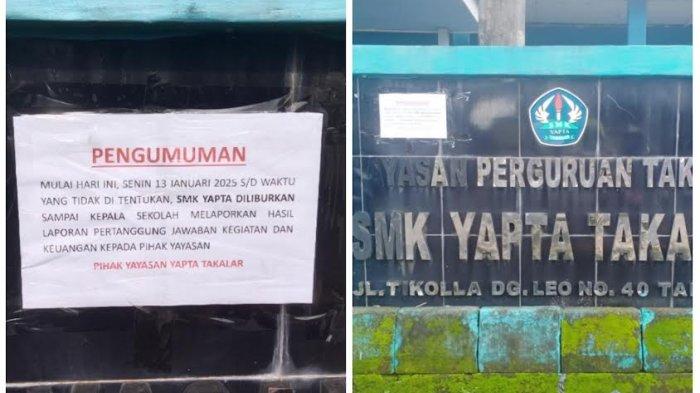 PENGUMUMAN
MULAI HARI INI, SENIN 13 JANUARI 2025 S/D WAKTU
YANG TIDAK DI TENTUKAN, SMK YAPTA DILIBURKAN
SAMPAI KEPALA SEKOLAH MELAPORKAN HASIL
LAPORAN PERTANGGUNG JAWABAN KEGIATAN DAN
KEUANGAN KEPADA PIHAK YAYASAN
PIHAK YAYASAN YAPTA TAKALAR
SMK
YAPTA
YASAN PERGURUAN TAK
SMK YAPTA TAKA
JL.TIKOLLA DG.LEO NO. 40 TA